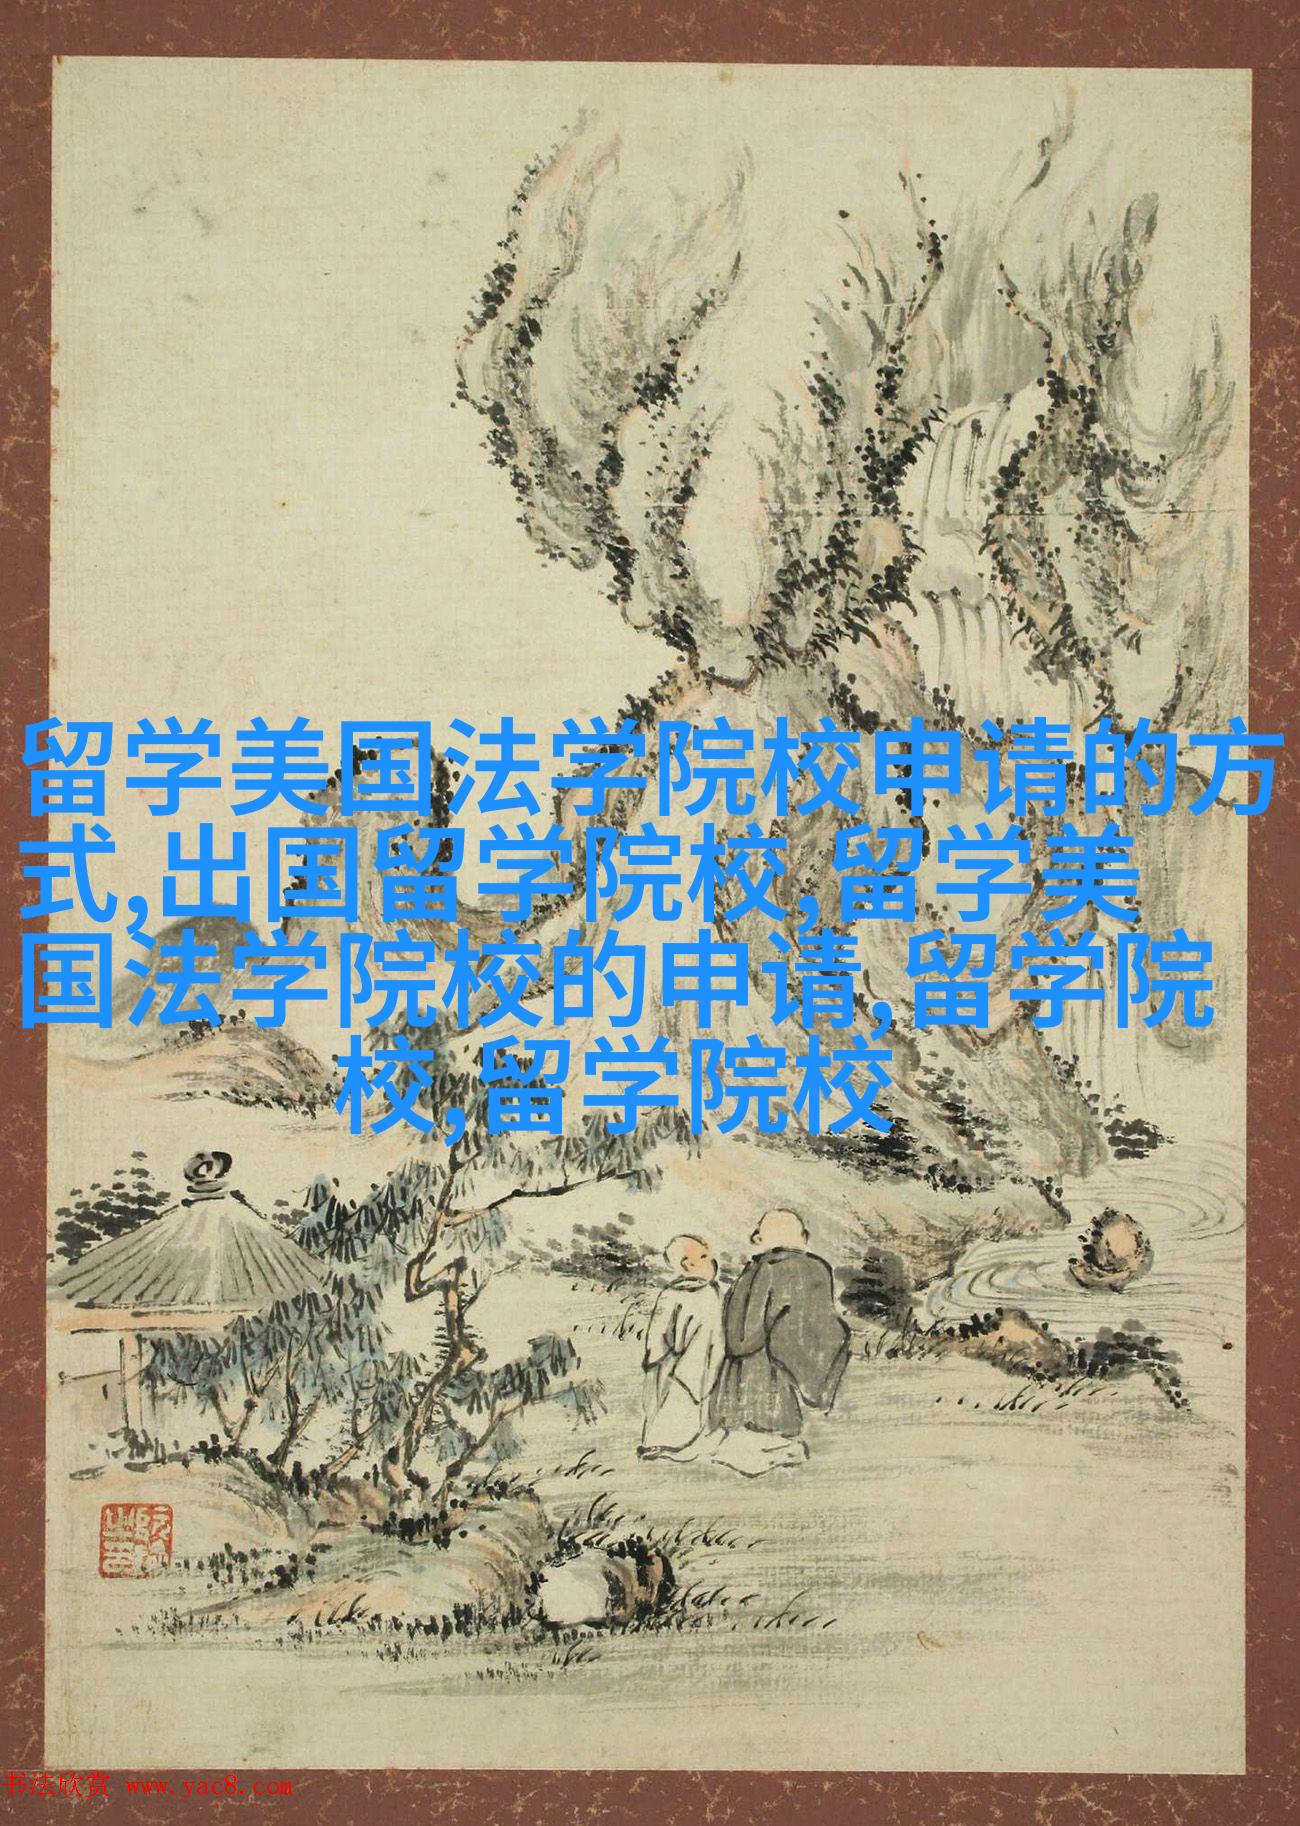 留学美国法学院校申请的方
式,出国留学院校,留学美
国法学院校的申请,留学院
校,留学院校
书法欣赏 www.yac8.com